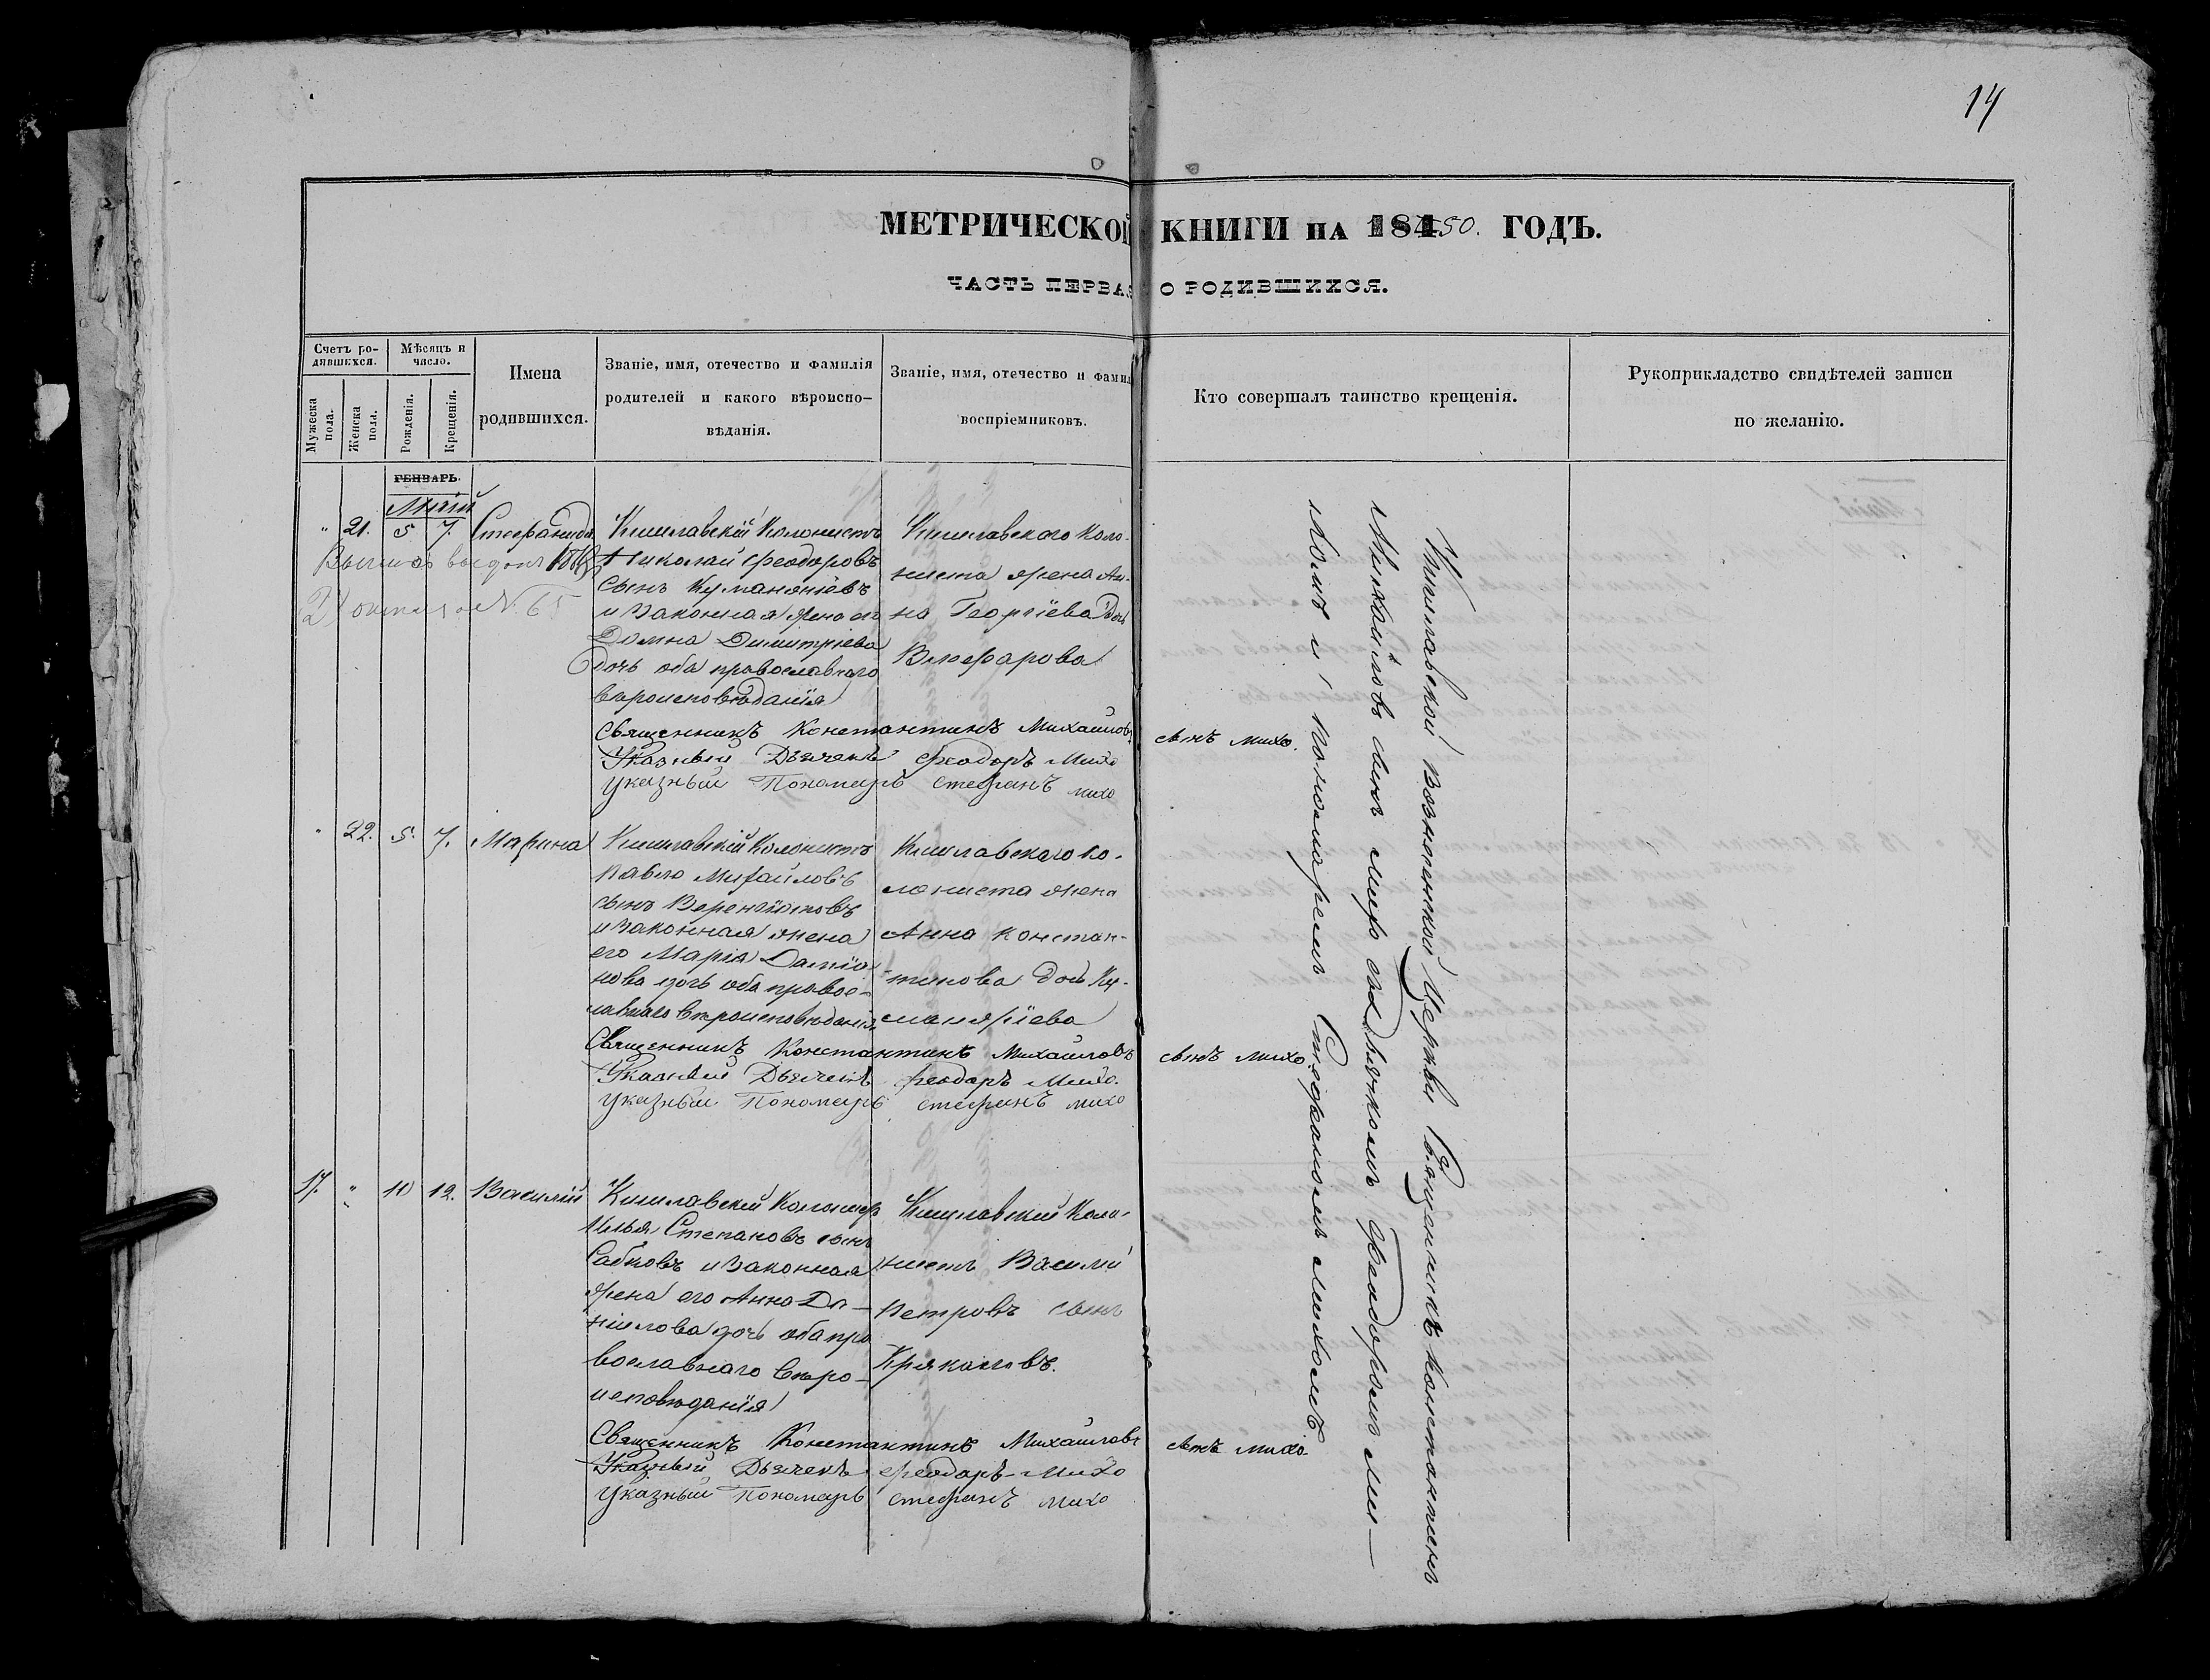 14
МЕТРИЧЕСКОЙ КНИГИ НА 1850. ГОДЪ.
ЧАСТЬ ПЕРВАЯ О РОДИВШИХСЯ.
Счетъ ро-
дившихся.
Мужеска пола.
Женска пола.
Мѣсяцъ и
число.
Рожденія.
Крещенія.
Имена
родившихся.
Званіе, имя, отечество и фамилія
родителей и какого вѣроиспо-
вѣданія.
Званіе, имя, отечество и фамил
воспріемниковъ.
Кто совершалъ таинство крещенія.
Рукоприкладство свидѣтелей записи
по желанію.
ГЕНВАРЬ.
Маій
" 21. 5 7. Стефанида
Кишлавскій Колонистъ
Николай Феодоровъ
сынъ
и законная жена его
Домна Димитріева
дочь оба православнаго
вѣроисповѣданія
Кишлавскаго коло-
ниста жена Ан-
на Георгіева дочь
№ 65
Священникъ Константинъ Михайловъ сынъ михо.
Указный Дьячекъ Феодоръ Михо
Указный Пономарь Стефанъ михо
" 22. 5. 7. Марина
Кишлавскій Колонистъ
Павло Михайловъ
сынъ
и законная жена
его Марія Даміа-
нова дочь оба правос-
лавнаго вѣроисповѣданія
Кишлавскаго ко-
лониста жена
Анна Констан-
тинова дочь Ку-
Священникъ Константинъ Михайловъ сынъ михо
Указный Дьячекъ Феодоръ Михо.
Указный Пономарь Стефанъ михо
17. " 10 12. Василій
Кишлавскій Колонистъ
Илья Степановъ сынъ
и законная
жена его Анна Да-
ніилова дочь оба пра
вославнаго вѣро-
исповѣданія
Кишлавскій Коло-
нистъ Василій
Петровъ сынъ
Священникъ Константинъ Михайловъ сынъ михо.
Указный Дьячекъ Феодоръ Михо
Указный Пономарь Стефанъ михо
Кишлавской Вознесенской Церкви Священникъ Константинъ
Михайловъ сынъ михо съ дьячкомъ Феодоромъ ми-
хомъ и пономаремъ Стефаномъ михомъ